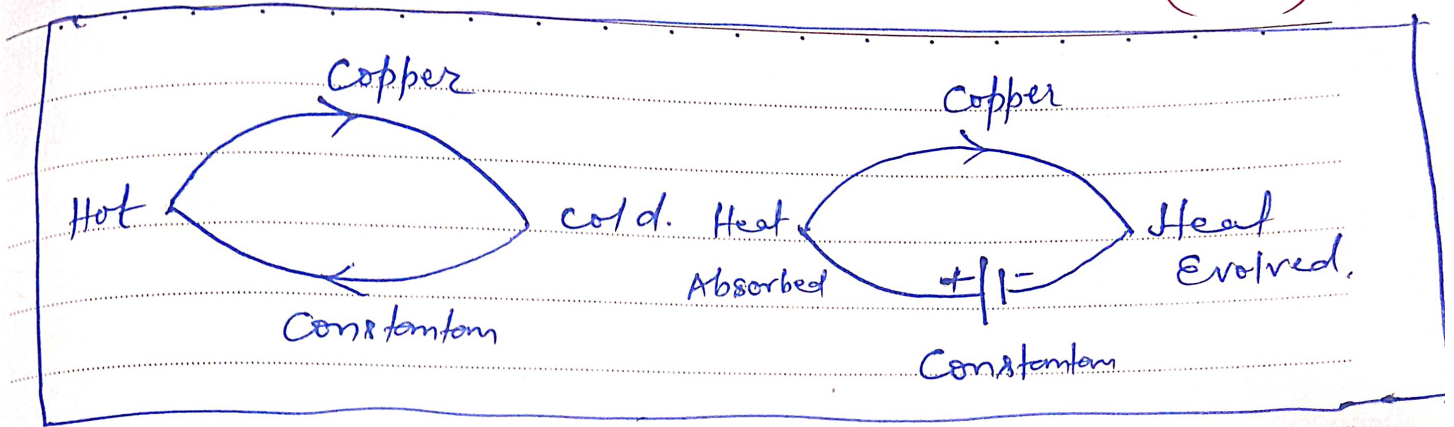 Copper
Hot
Cold.
Constantan
Copper
Heat
Absorbed
+ -
Heat
Evolved.
Constantan